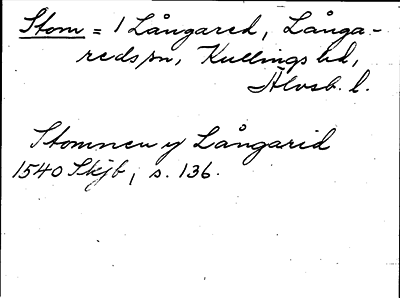 Stom = 1 Långared, Långa-
reds sn, Kullings hd,
Älvsb. l.
Stomnen y Långarid
1540 Skjb, s. 136.